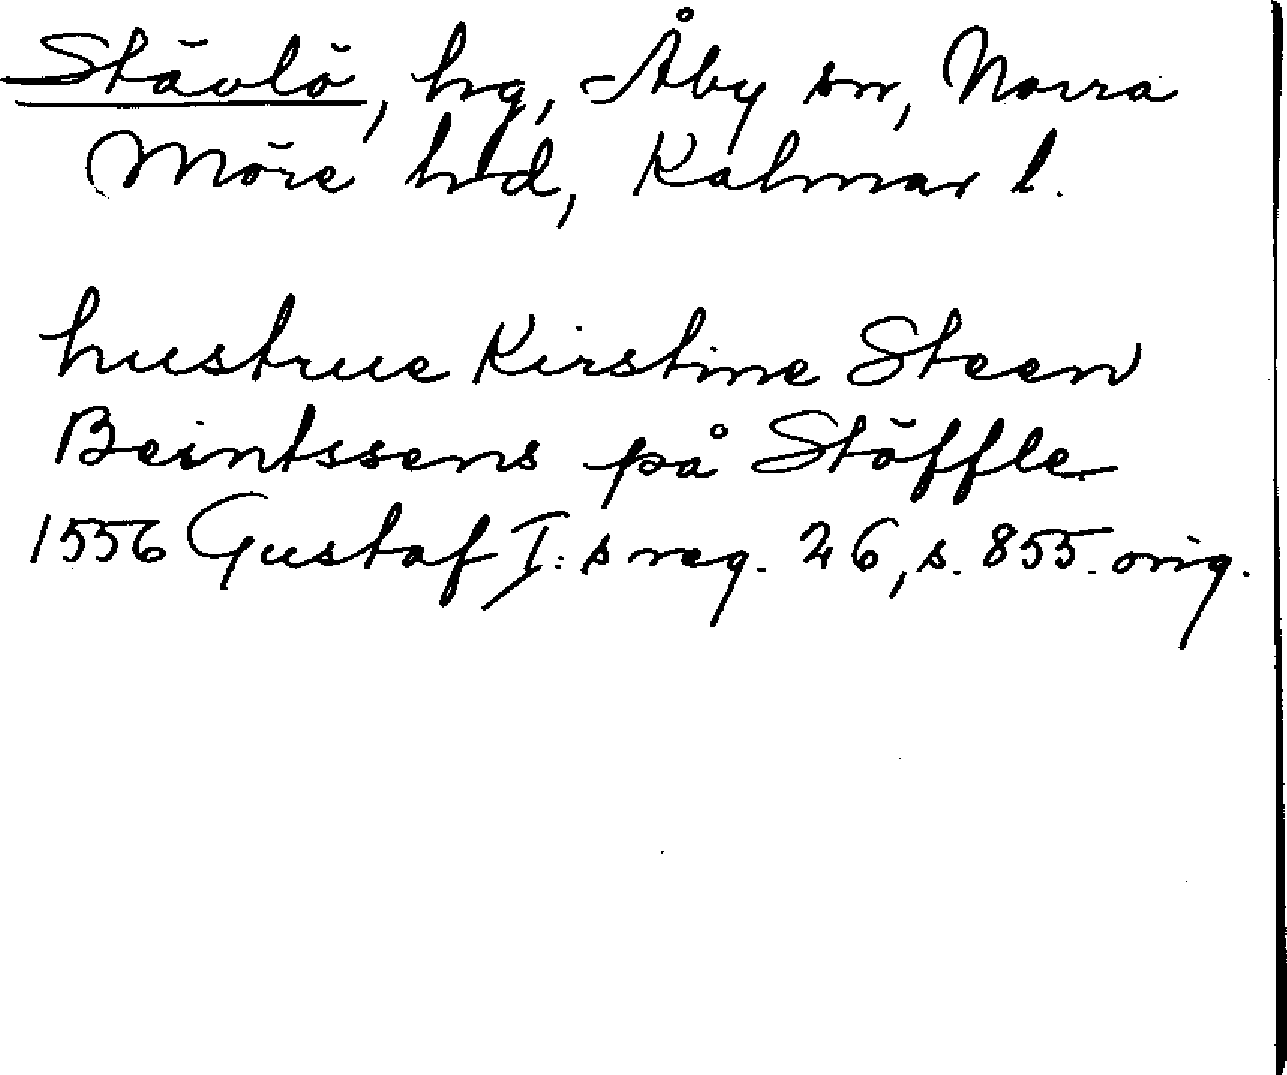 Stävlö, hg, Åby sn, Norra
Möre hrd, Kalmar l.
hustrue Kirstine Steen
Beintssens på Stöffle
1556 Gustaf I:s reg. 26, s. 855. orig.